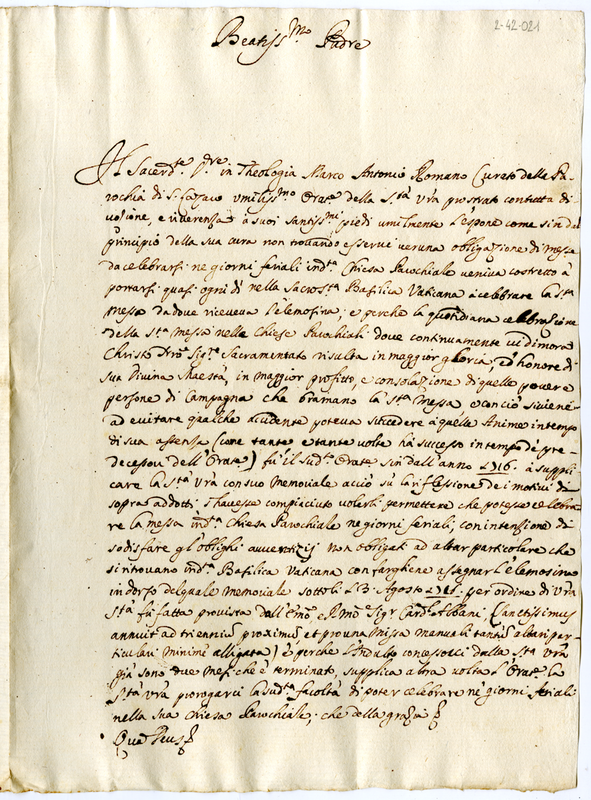 2-42-021
Beatiss.mo Padre
Il Sacerd.te Pre. in Theologia Marco Antonio Romano Curato della Pa-
rochia di S. Lazaro umiliss.mo Orate della S.tà Vrā prostrato con tutta di
uozione, e riverenza à suoi santiss.mi piedi umilmente l'espone come sin dal
principio della sua cura non trouando esserue veruna obligazione di messe
da celebrarsi ne giorni feriali in d.ta Chiesa Parochiale veniva costretto à
portarsi quasi ogni dì nella Sacros.ta Basilica Vaticana à celebrare la S.ta
Messa da doue riceveva l'elemosina; e perche la quotidiana celebrazione
della S.ta Messa nelle Chiese Parochiali doue continuamente vi dimora
Christo Nro Sig.re Sacramentato risulta in maggior gloria, ed honore di
Sua Divina Maestà, in maggior profitto, e consolazione di quelle povere
persone di Campagna che bramano la S.ta Messa e con ciò si viene
ad euitare qualche accidente poteua succedere à quelle Anime in tempo
di sua assenza (come tante e tante volte hà successo in tempo de pre-
decessori dell'Orate) fù il sud.to Orate sin dall'anno 1716. à suppli
care la S.tà Vrā con suo Memoriale acciò sù la riflessione de i motivi di
sopra addotti s'hauesse compiaciuto volerli permettere che potesse celebra
re la messa in d.ta Chiesa Parochiale ne giorni feriali, con intenzione di
sodisfare gl'oblighi auuentizij non obligati ad altar particolare che
si trovano in d.ta Basilica Vaticana con farghene assegnar l'elemosina
in dorso del quale Memoriale sotto li 13. Agosto 1716. per ordine di Vrā
S.tà fù fatta provista dall'Emo e Rmo Sig.r Card.l Albani, (Sanctissimus
annuit ad trienniū proximū et pro una Missa manuali tantū altari par-
ticulari minimè alligata) e perche l'Indulto concessoli dalla S.tà Vrā
già sono due mesi che è terminato, supplica altra volta l'Orat.e la
S.tà Vrā prorogarci la sud.ta facoltà di poter celebrare ne giorni feriali
nella sua Chiesa Parochiale, che della grazia
Quā Deus